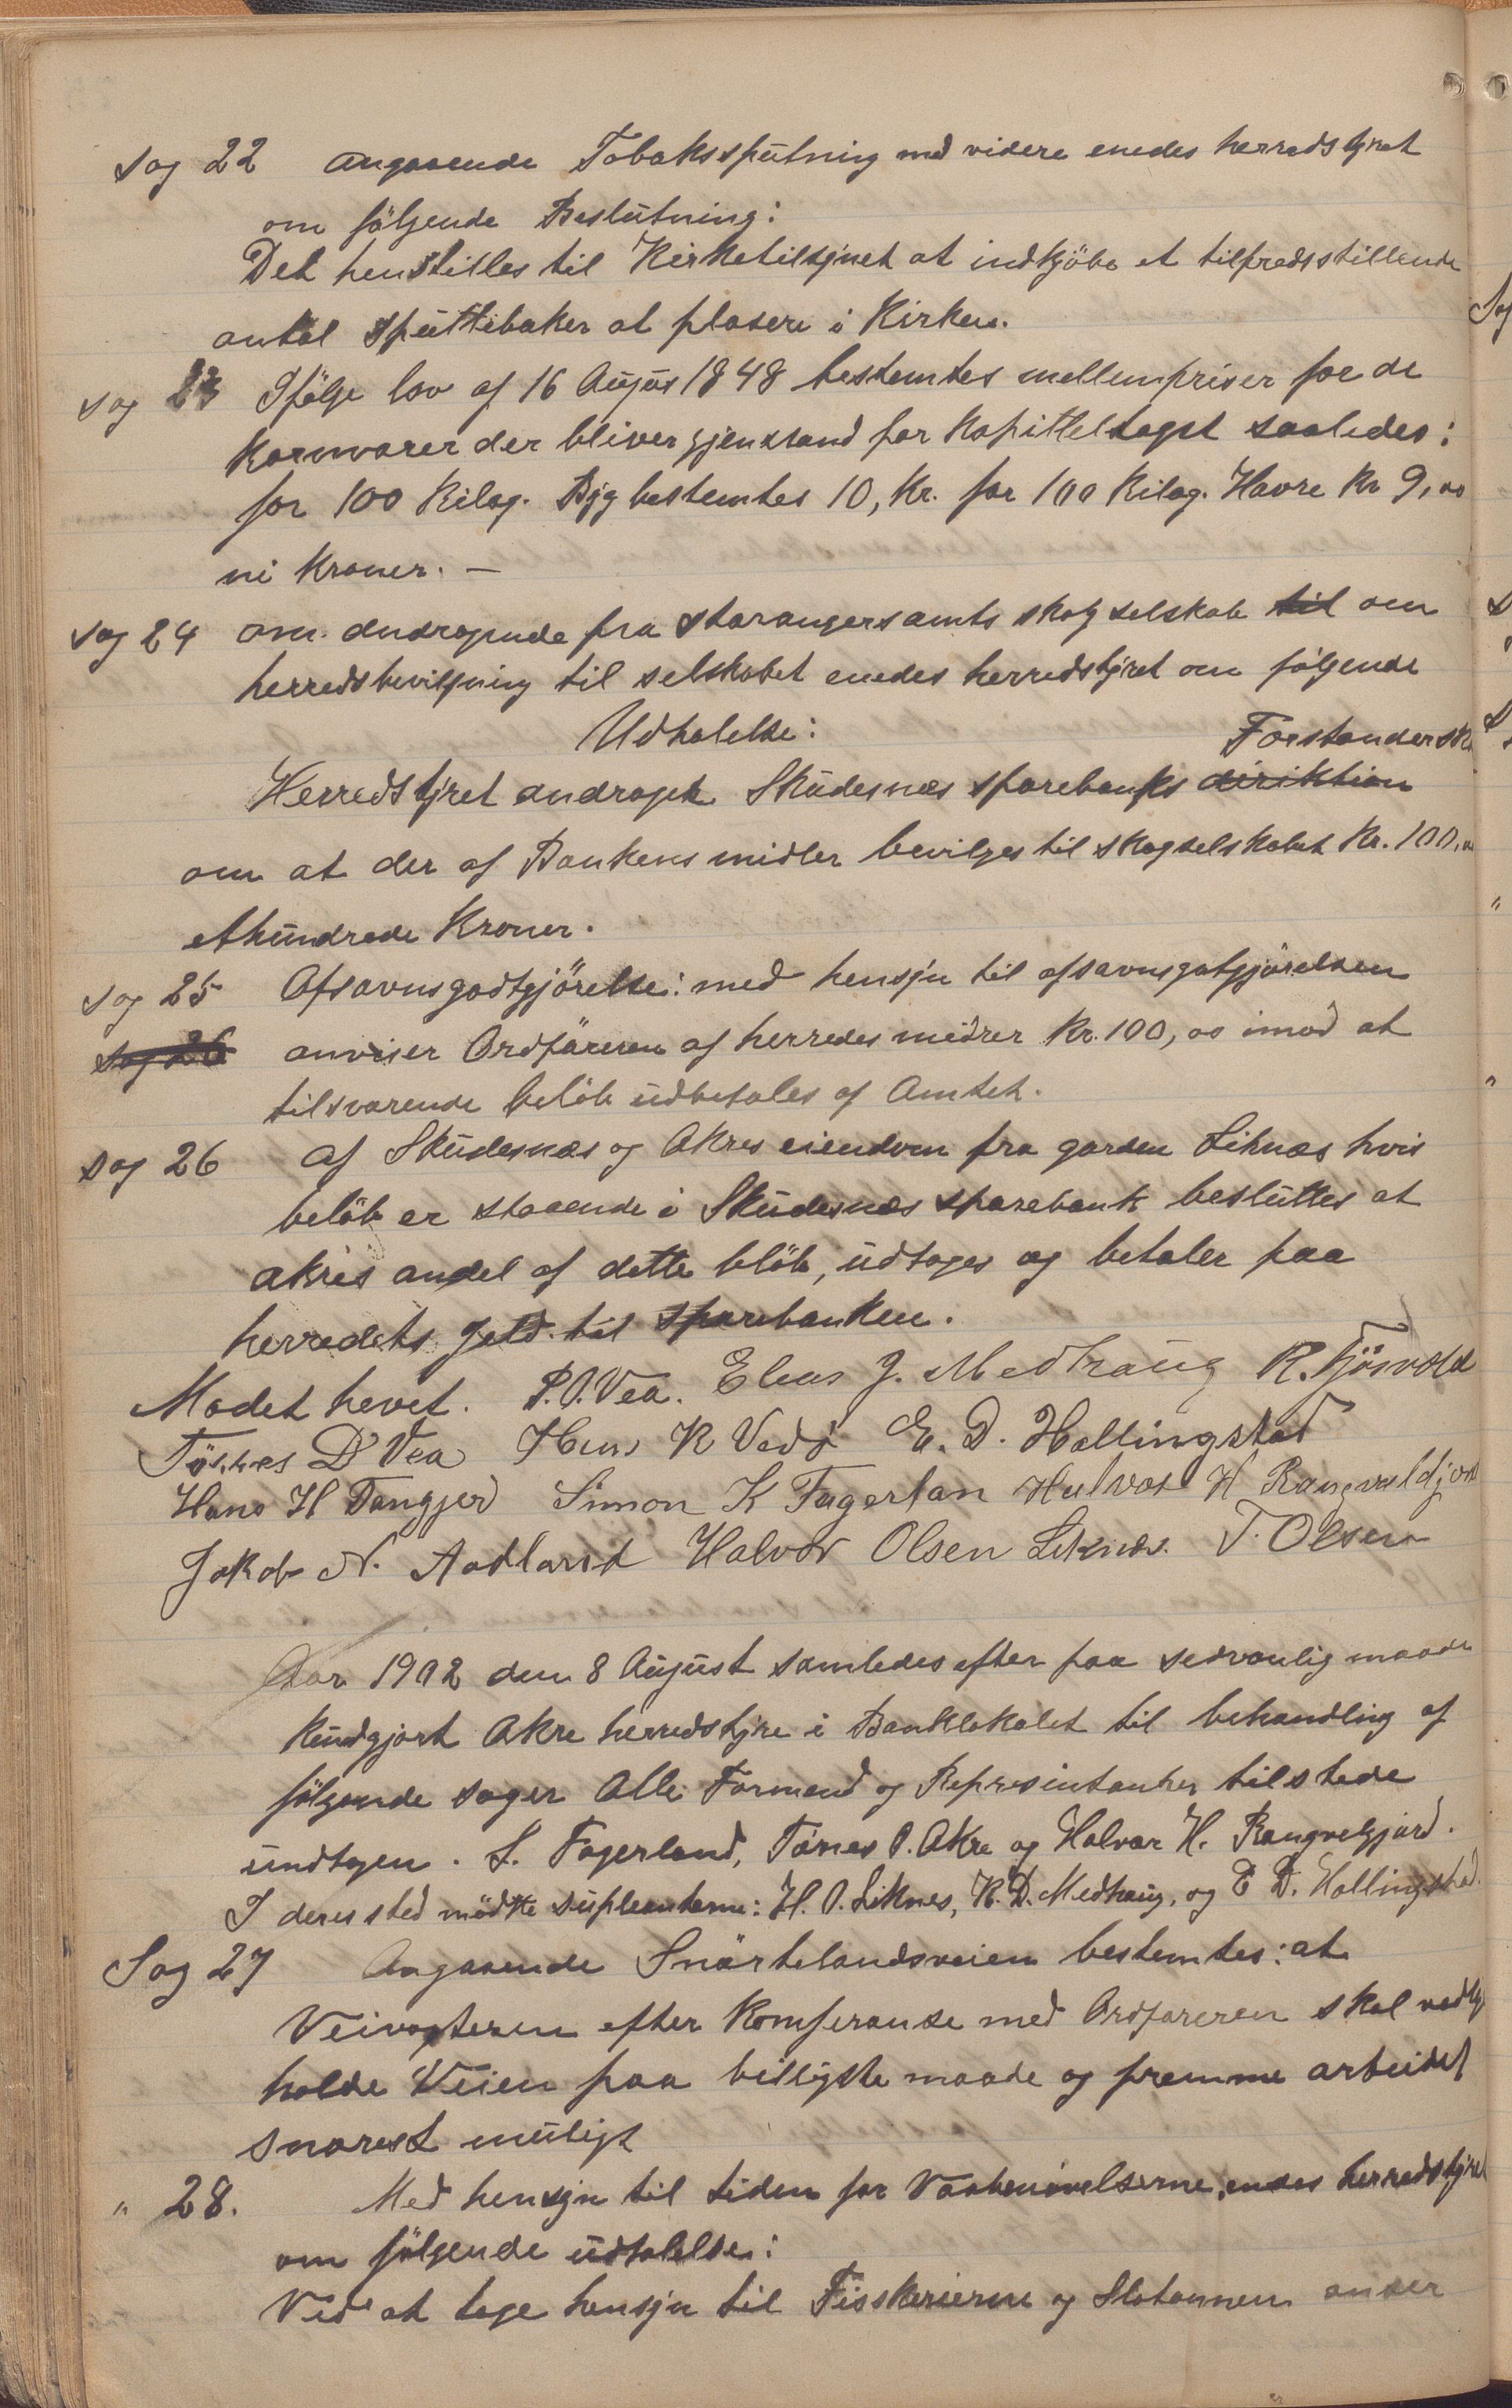 Sag 22 angaaende Tobaksspütning med videre enedes herredstyret
om følgende Beslütning:
Det henstilles til Kirketilsynet at indkjöbe et tilfredsstillende
antal spüttebaker at plasere i Kirken.
sag 23 Ifölge lov af 16 Augus 1848 bestemtes mellempriser for de
Kornvarer der bliver gjenstand for Kapitteltagst saaledes:
for 100 Kilog. Byg bestemtes 10, Kr. for 100 Kilog. Havre Kr 9,00
ni Kroner. —
Sag 24 om. andragende fra Stavangersamts skogselskab til om
herredsbevilgning til selskabet enedes herredstyret om følgende
Udtalelse:
Forstandersk
Herredstyret androget Sküdesnæs sparebanks diriktion
om at der af Bankens midler bevilges til skogselskabet Kr. 100,00
ethündrede Kroner.
Sag 25 Afsavnsgodtgjörelse: med hensyn til afsavnsgatgjörelsen
Sag 26 anviser Ordføreren af herredes midler Kr. 100,00 imod at
tilsvarende belöb üdbetales af Amtet.
Sag 26 af Sküdesnæs og Akres eiendom fra garden Liknæs hvis
belöb er staaende i Sküdesnæs sparebank beslüttes at
akres andel af dette blöb, üdtages og betaler paa
herredets Jeld til sparebanken.
Mødet hevet. P.O. Vea. Elias J. Medhaüg R. Tjösvold
Tönnes D Vea Hans K Vedø E. D. Hallingstad
Hans H Tangjerd Simon K Fagerlan Halvar H Rangveldjor
Jakob N. Aadland Halvor Olsen Liknes. T. Olsen
Aar 1902 den 8 Aügüst samledes efter paa sedvanlig maade
Kündgjort Akre herredstyre i Banklokalet til behandling af
følgende sager Alle Formend og Represintanter tilstede
ündtagen. S. Fagerland, Tönes O. Akre og Halvar H. Rangvelgjard.
I deres sted mödte süpleanterne: H. O. Liknes, K. D. Medhaüg, og E D. Hallingstad.
Sag 27 Angaaende Snörtelandsveien bestemtes: at
Veivogteren efter Komferanse med Ordføreren skal vedlige
holde Veien paa billigste maade og fremme arbeidet
snarest müligt
" 28. Med hensyn til tiden for Vaabenøvelserne, enes herredstyret
om følgende üdtalelse:
Ved at tage hensyn til Fisskerierne og Slotannen anser